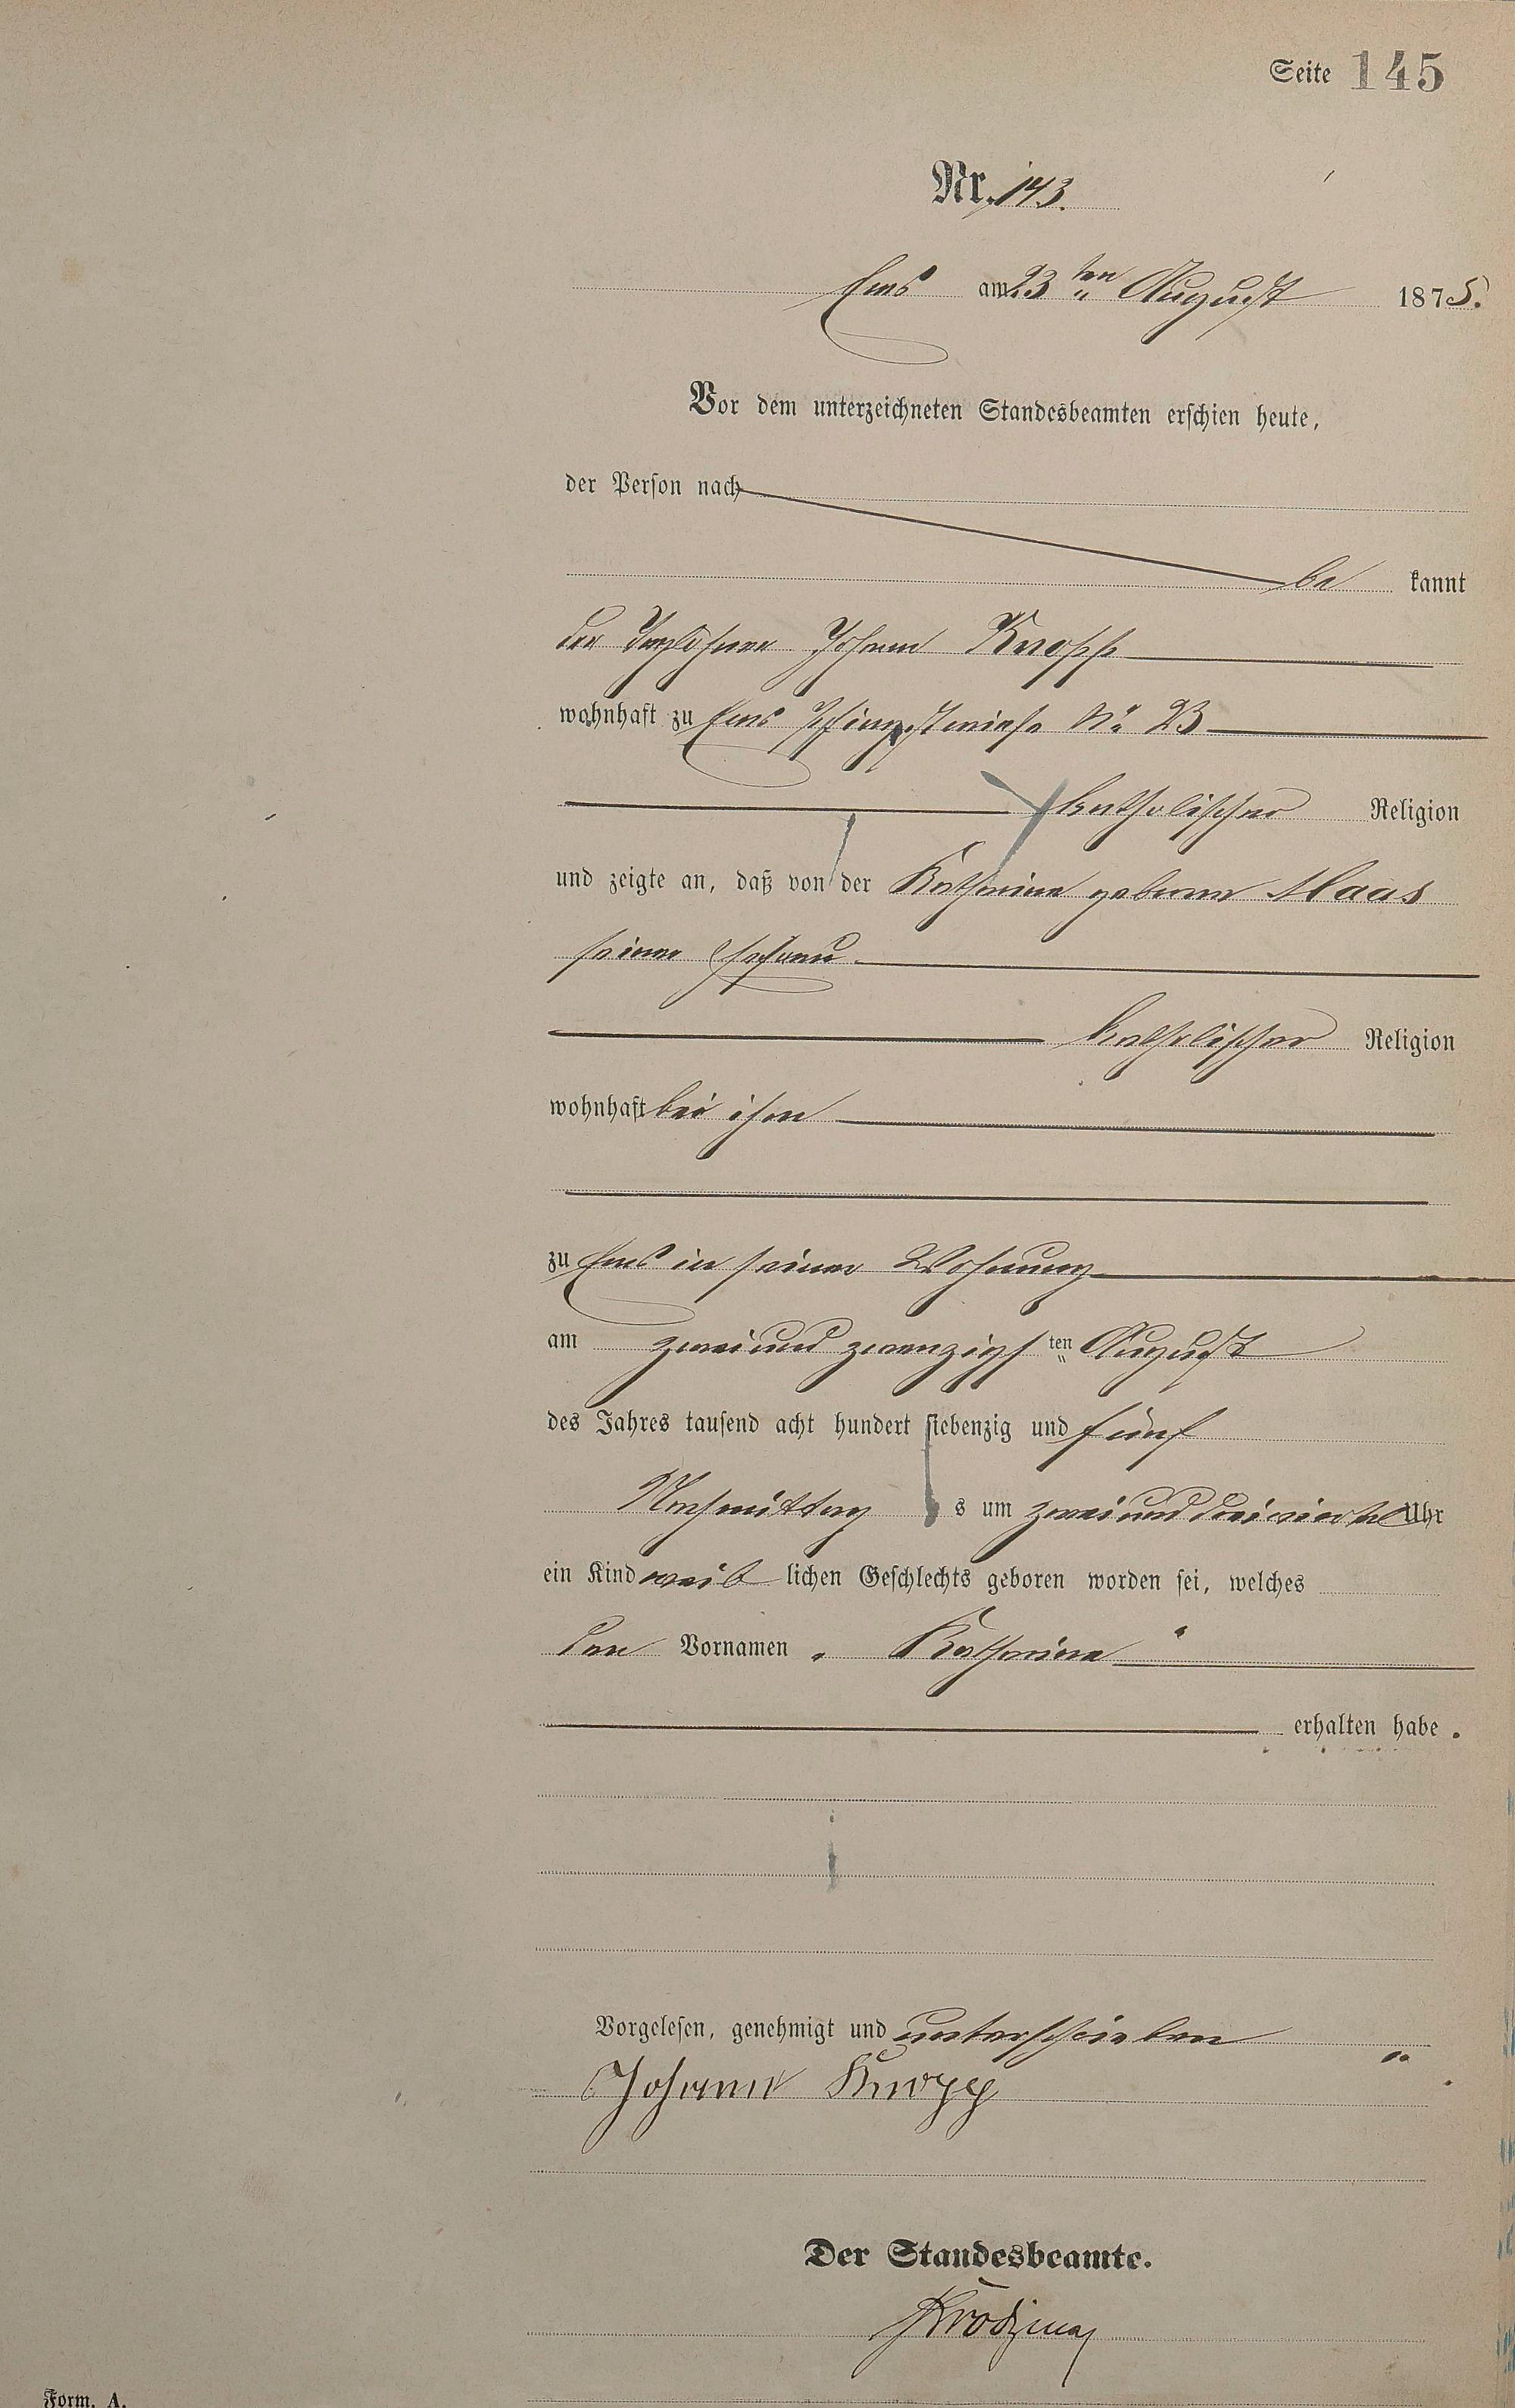 Seite 145
Nr. 143.
Ems am 23ten August 1875.
Vor dem unterzeichneten Standesbeamten erschien heute,
der Person nach
be kannt
der Taglöhner Johann Knopp
wohnhaft zu Ems Pfingstwiese No 23
katholischer Religion
und zeigte an, daß von der Katharina geborne Maas
seiner Ehefrau
katholischer Religion
wohnhaft bei ihm
zu Ems in seiner Wohnung
am zweiundzwanzigsten August
des Jahres tausend acht hundert siebenzig und fünf
Nachmittags um zwei und dreiviertel Uhr
ein Kind weiblichen Geschlechts geboren worden sei, welches
den Vornamen „Katharina“
erhalten habe.
Vorgelesen, genehmigt und unterschrieben
Johann Knopp
Der Standesbeamte.
Form. A.